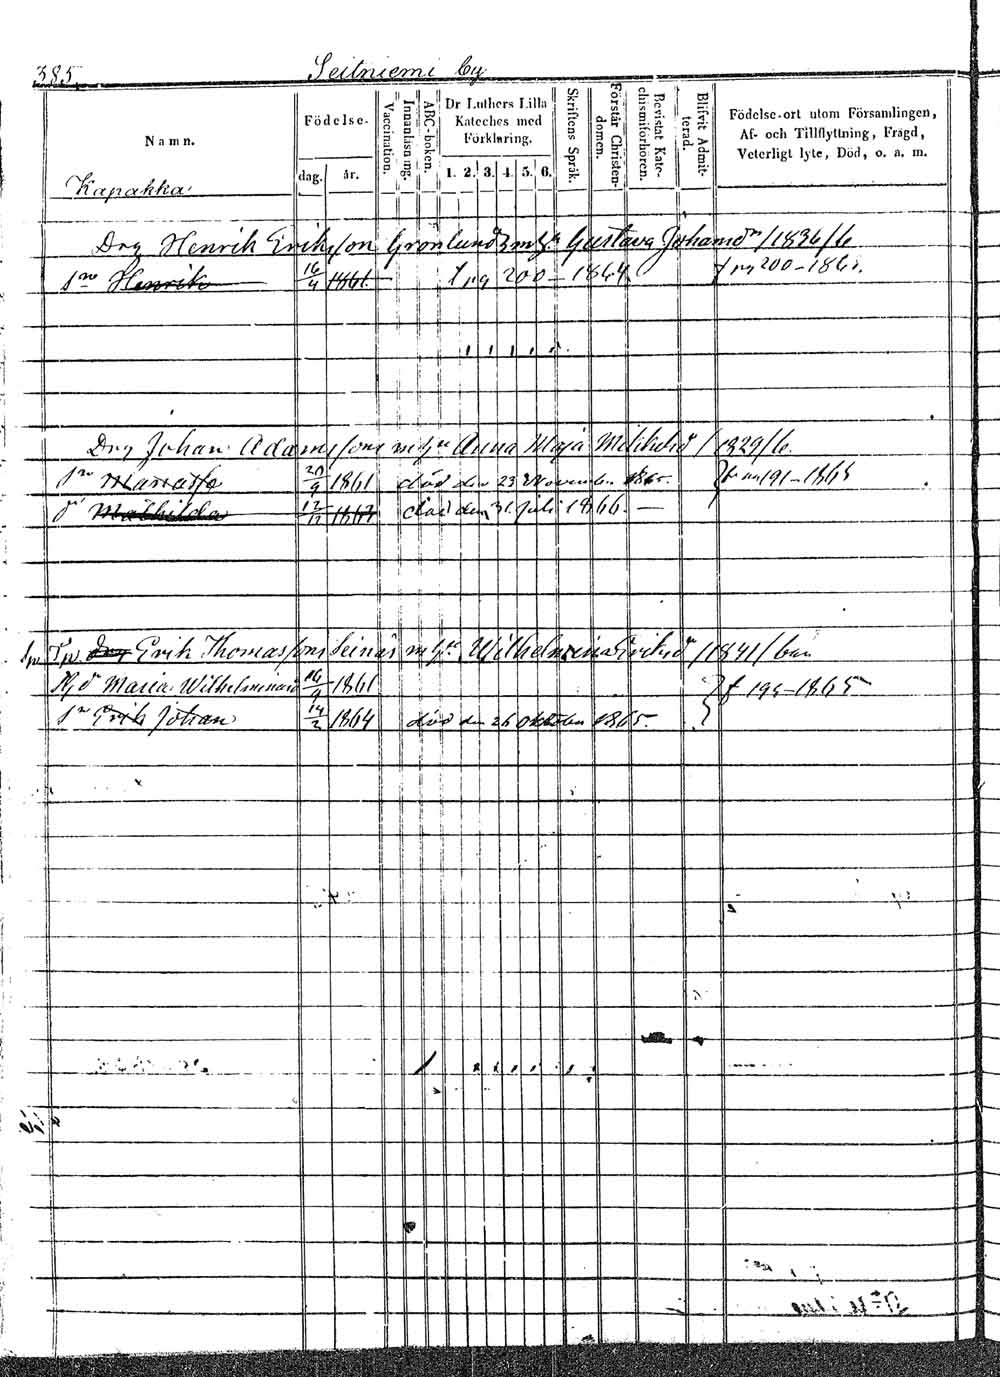 385.
Seitniemi by
Namn.
Födelse-
dag.
år.
Vaccination.
Innanläsning.
ABC-boken.
Dr Luthers Lilla Kateches med Förklaring.
1. 2. 3. 4. 5. 6.
Skriftens Språk.
Förstår Christendomen.
Bevistat Katechismiförhören.
Blifvit Admitterad.
Födelse-ort utom Församlingen,
Af- och Tillflyttning, Frägd,
Veterligt lyte, Död, o. a. m.
Kapakka
Drg Henrik Eriksson Grönlund m h Gustava Johansdr /1836/6
sn Henrik 16/4 1861 200 - 1864 200-186
Drg Johan Adamsson m hu Anna Maja /1829/6
sn 20/9 1861 död den 23 November 1865. 191-1865
dr Mathilda 12/ död den 31 Juli 1866. —
Drg Erik Thomasson m hu Wilhelmina Eriksdr /1841/
dr Maria Wilhelmina 16/9 1861 195-1865
sn Erik Johan 14/2 1864 död den 26 Oktober 1865.